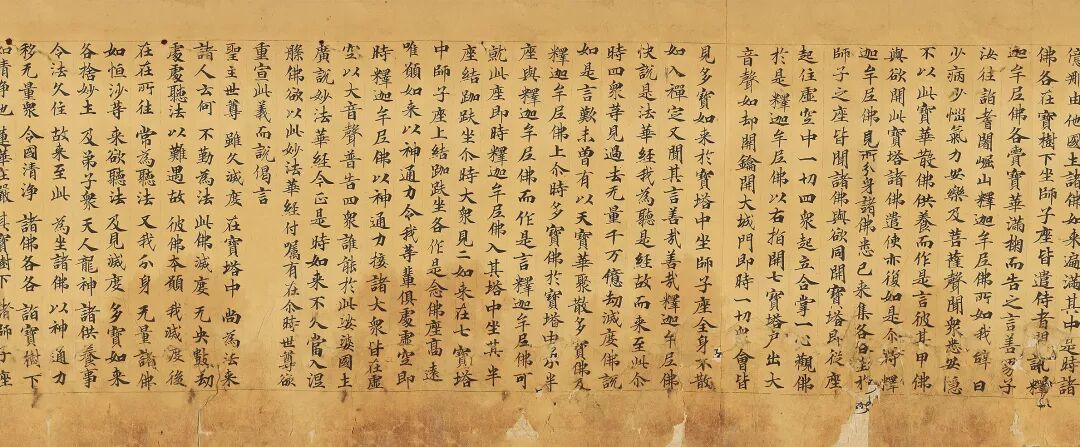 億那由他國土諸佛如來遍滿其中是時諸
佛各在寶樹下坐師子座皆遣侍者問訊釋
迦牟尼佛各賷寶華滿掬而告之言善男子
汝往詣耆闍崛山釋迦牟尼佛所如我辭曰
少病少惱氣力安樂及菩薩聲聞眾悉安隱
不以此寶華散佛供養而作是言彼某甲佛
與欲開此寶塔諸佛遣使亦復如是尒時釋
迦牟尼佛見所分身諸佛悉已來集各各坐於
師子之座皆聞諸佛與欲同開寶塔即從座
起住虛空中一切四眾起立合掌一心觀佛
於是釋迦牟尼佛以右指開七寶塔戶出大
音聲如却開鑰開大城門即時一切眾會皆
見多寶如來於寶塔中坐師子座全身不散
如入禪定又聞其言善哉善哉釋迦牟尼佛
快說是法華經我為聽是經故而來至此尒
時四眾等見過去无量千万億劫滅度佛說
如是言歎未曾有以天寶華聚散多寶佛及
釋迦牟尼佛上尒時多寶佛於寶塔中分半
座與釋迦牟尼佛而作是言釋迦牟尼佛可
就此座即時釋迦牟尼佛入其塔中坐其半
座結跏趺坐尒時大眾見二如來在七寶塔
中師子座上結跏趺坐各作是念佛座高遠
唯願如來以神通力令我等輩俱處虛空即
時釋迦牟尼佛以神通力接諸大眾皆在虛
空以大音聲普告四眾誰能於此娑婆國土
廣說妙法華經今正是時如來不久當入涅
槃佛欲以此妙法華經付囑有在尒時世尊欲
重宣此義而說偈言
聖主世尊 雖久滅度 在寶塔中 尚為法來
諸人云何 不勤為法 此佛滅度 无央數劫
處處聽法 以難遇故 彼佛本願 我滅度後
在在所往 常為聽法 又我分身 无量諸佛
如恒沙等 來欲聽法 及見滅度 多寶如來
各捨妙土 及弟子眾 天人龍神 諸供養事
令法久住 故來至此 為坐諸佛 以神通力
移无量眾 令國清淨 諸佛各各 詣寶樹下
如清淨池 蓮華莊嚴 其寶樹下 諸師子座